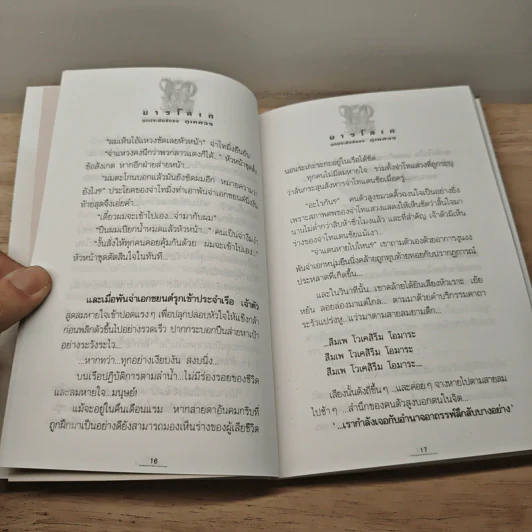 มารโลเก
"ผมเห็นไอ้แหวงซัดเลยหัวหน้า" จ่าโทมิ่งยืนยัน
"จ่าแหวงคงนึกว่าพวกลาวแดงก็ได้..." หัวหน้าชุดตั้ง
ข้อสังเกต หากอีกฝ่ายส่ายหน้า...
"ผมตะโกนบอกแล้วมันยังซัดผมอีก หมายความว่า
ยังไงฯ" ประโยคของจ่าโทมิ่งทำเอาพันจ่าเอกขยนต์นิ่งงัน
ท้ายสุดจึงเอ่ยคำ...
"เดี๋ยวผมจะเข้าไปเอง...จ่ามากับผม"
"ปืนผมเปียกน้ำหมดแล้วหัวหน้า..."
"งั้นสั่งให้ทุกคนคอยคุ้มกันด้วย ผมจะเข้าไปเอง..."
หัวหน้าชุดตัดสินใจในทันที...
และเมื่อพันจ่าเอกขยนต์รุกเข้าประจำเรือ เจ้าตัว
สูดลมหายใจเข้าปอดแรง ๆ เพื่อปลุกปลอบหัวใจให้แข็งกล้า
ก่อนพลิกตัวขึ้นไปอย่างรวดเร็ว ปากกระบอกปืนส่ายหาเป้า
อย่างระวังระไว...
...หากทว่า...ทุกอย่างเงียบงัน สงบนิ่ง...
บนเรือปฏิบัติการตามลำน้ำ...ไม่มีร่องรอยของชีวิต
และลมหายใจ...มนุษย์!
แม้จะอยู่ในคืนเดือนแรม หากสายตาอันคมกริบที่
ถูกฝึกมาเป็นอย่างดียังสามารถมองเห็นร่างของผู้เสียชีวิต
16
มารโลเก
นอนระเกะระกะอยู่ในเรือได้ชัด...
ทุกคนไม่มีลมหายใจ รวมทั้งจ่าโทแสวงที่ถูกระบุ
ว่าลั่นกระสุนสังหารจ่าโทแดนชัยเมื่อครู่...
"อะไรกัน!" คนตัวสูงขมวดคิ้วฉงนใจเป็นอย่างยิ่ง
เพราะสภาพศพของจ่าโทแสวงแสดงให้เห็นชัดว่าสิ้นใจมา
นานไม่ต่ำกว่าสิบห้าชั่วโมงแล้ว และที่สำคัญ เจ้าตัวมิเห็น
ร่างของจ่าโทแดนชัยแม้เงา
"จ่าแดนหายไปไหน!" เขาถามตัวเองด้วยอาการงุนงง
พันจ่าเอกหนุ่มยืนนิ่งคล้ายถูกทุบท้ายทอยกับปรากฏการณ์
ประหลาดที่เกิดขึ้น...
และในวินาทีนั้น เขาคล้ายได้ยินเสียงหัวเราะ เยีย
หยัน ลอยล่องมาแต่ไกล... ตามมาด้วยคำบริกรรมคาถา
ระรัวแปร่งหู...แว่วมาตามสายลมยามดึก...
...สิมเพ โวเคสิริม โอมาระ
สิมเพ โวเคสิริม โอมาระ
สิมเพ โวเคสิริม โอมาระ...
เสียงนั้นดังถี่ขึ้น ๆ ...และค่อย ๆ จางหายไปตามสายลม
ไปช้า ๆ ...สำนึกของคนตัวสูงบอกตนในจิต...
'...เรากำลังเจอกับอำนาจอาถรรพ์ลึกลับบางอย่าง'
17